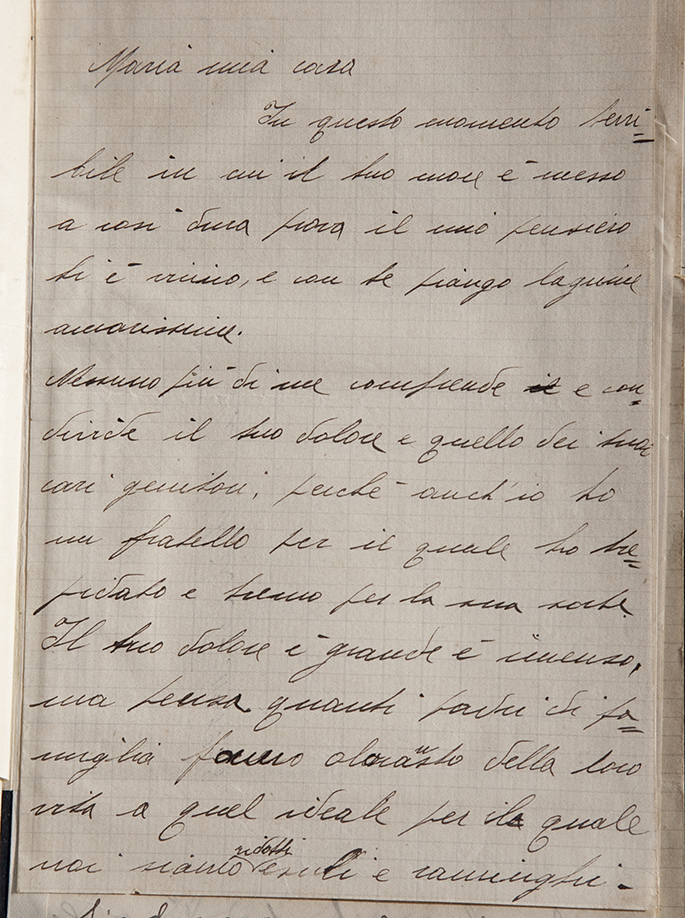 Maria mia cara
In questo momento terri=
bile in cui il tuo cuore è messo
a così dura prova il mio pensiero
ti è vicino, e con te piango lagrime
amarissime.
Nessuno più di me comprende e con=
divide il tuo dolore e quello dei tuoi
cari genitori, perchè anch'io ho
un fratello per il quale ho tre=
pidato e tremo per la sua sorte.
Il tuo dolore è grande è imenso,
ma pensa quanti padri di fa=
miglia fanno olocausto della loro
vita a quel ideale per il quale
noi siamo ridotti esuli e raminghi.